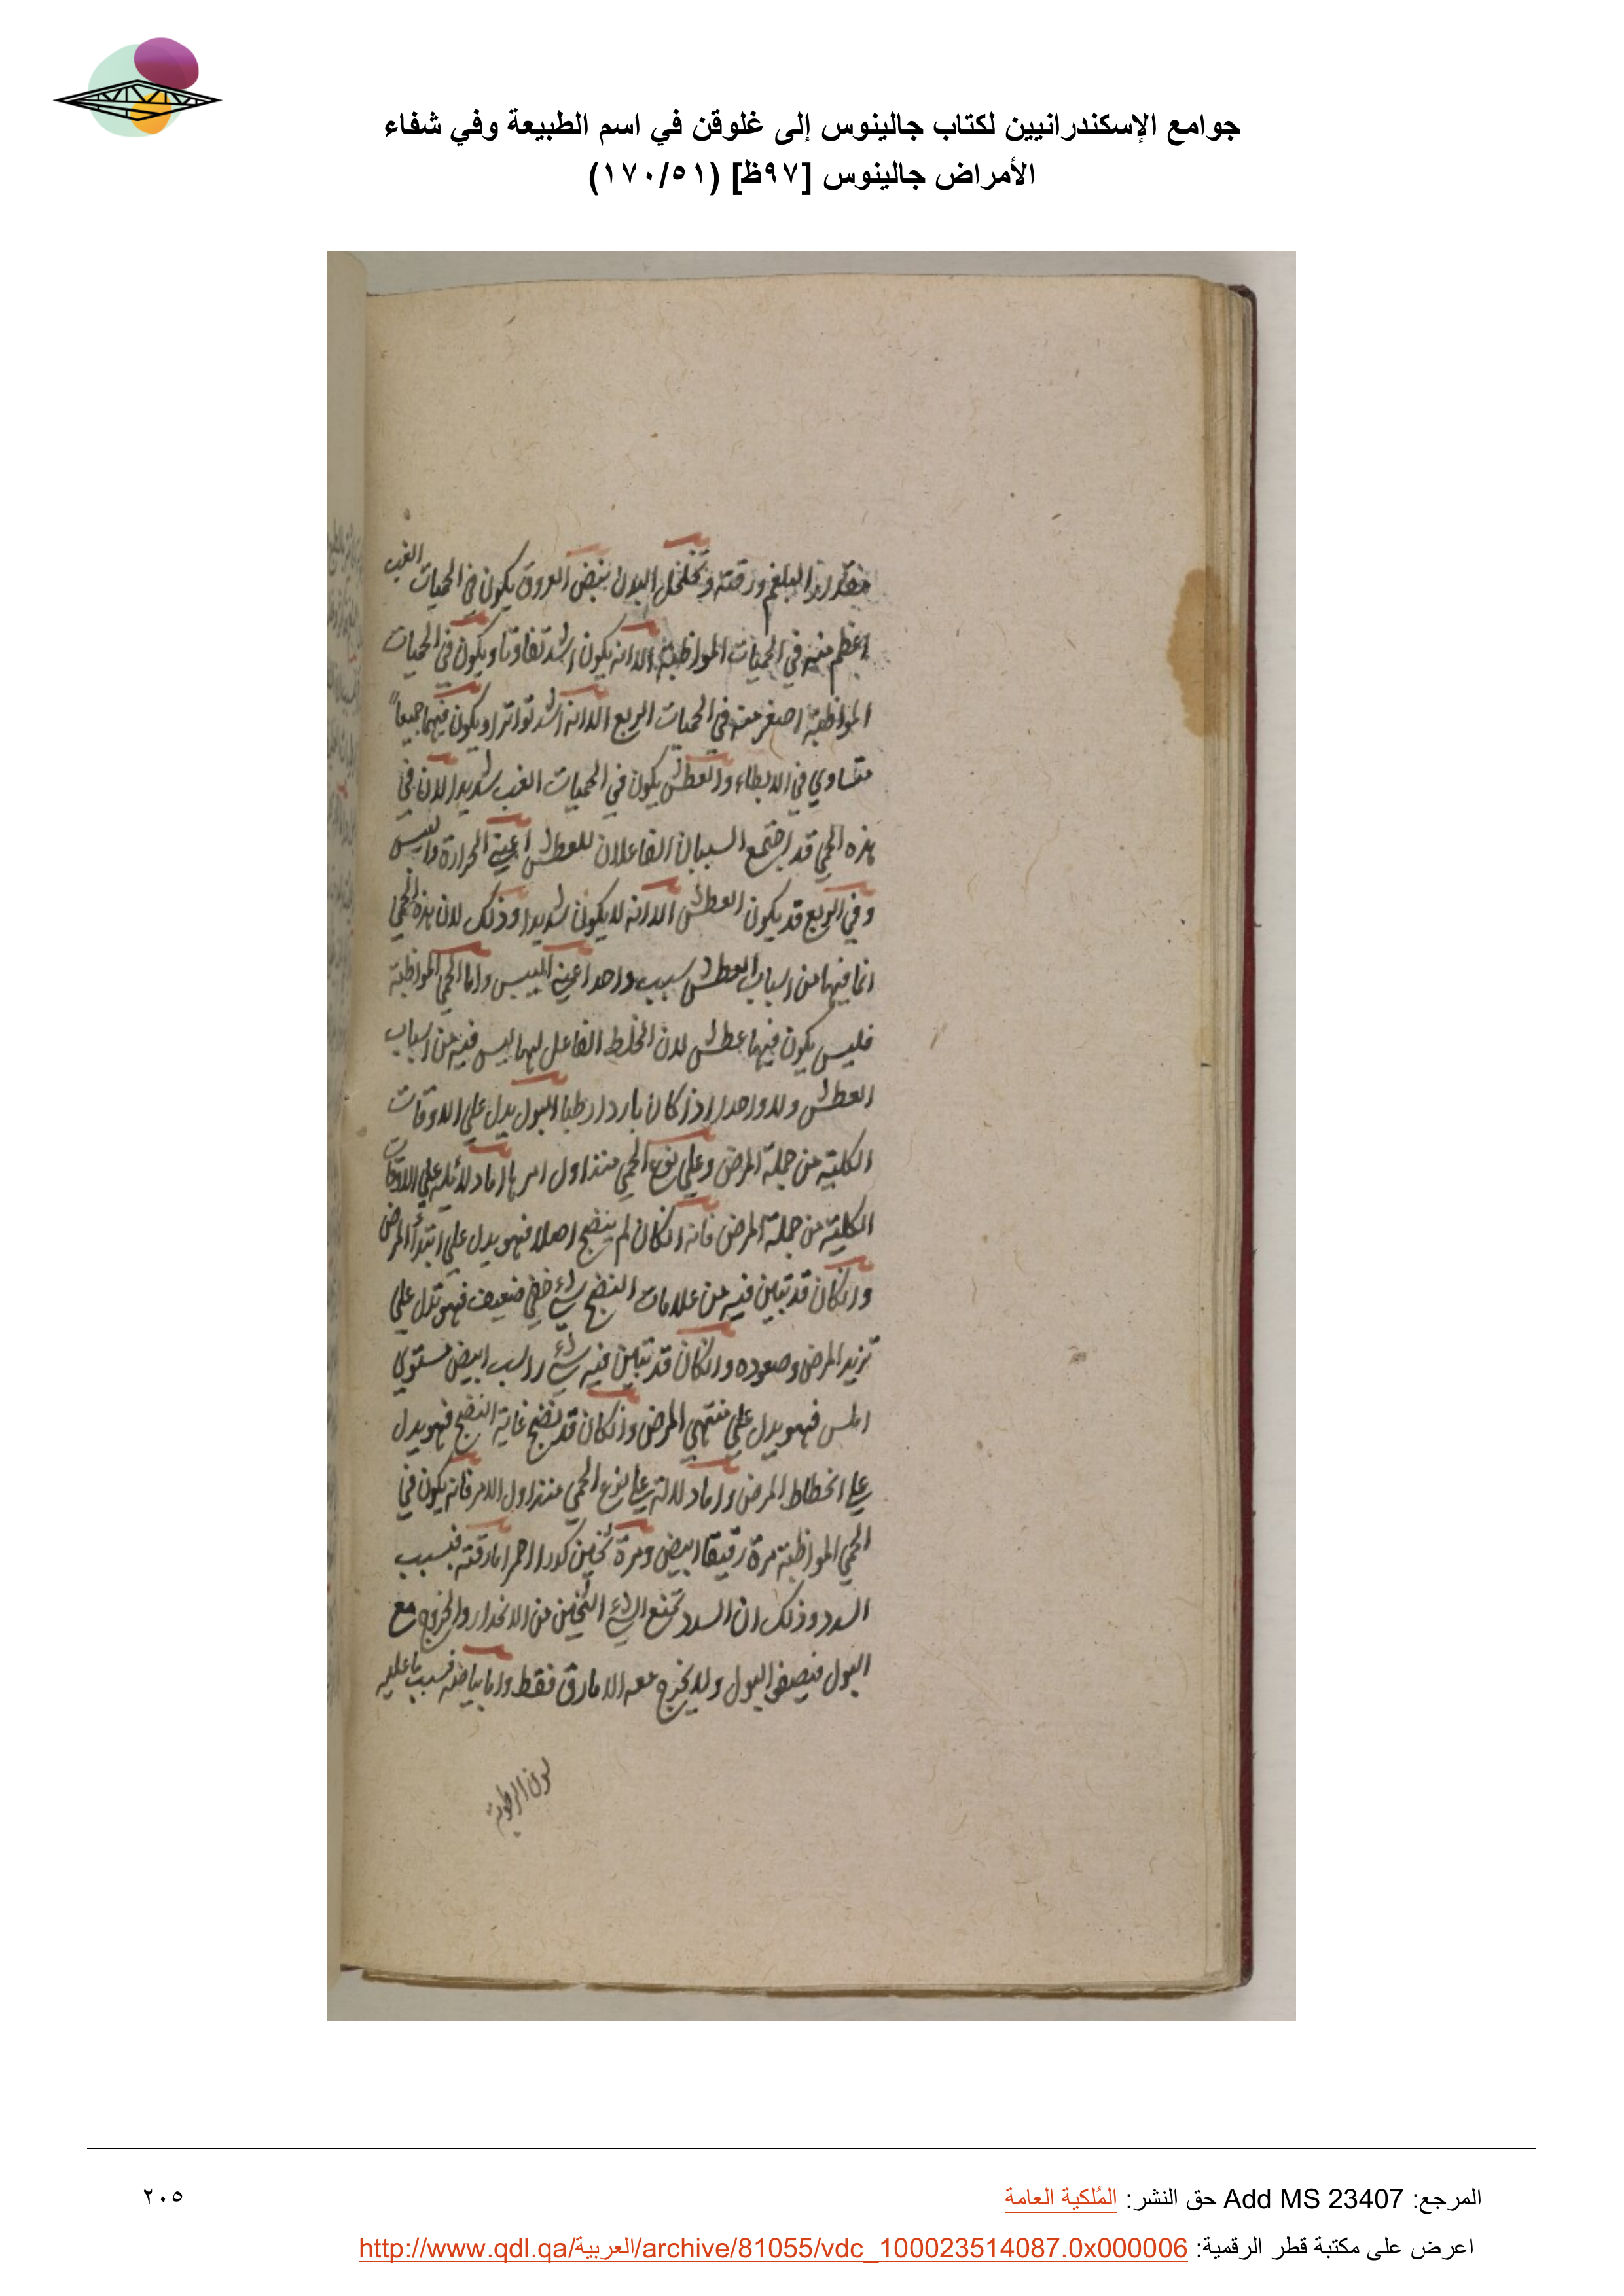 جوامع الإسكندرانيين لكتاب جالينوس إلى غلوقن في اسم الطبيعة وفي شفاء
الأمراض جالينوس [٩٧ظ] (١٧٠/٥١)
البلغم ورقته وتخلخل البدن نبض العروق يكون في الحميات الغب
اعظم منه في الحميات المواظبة الا انه يكون اشد تفاوتا ويكون في الحميات
المواظبة اصغر منه في الحميات الربع الا انه اشد تواترا ويكون فيهما جميعاً
متساوي في الابطاء والعطش يكون في الحميات الغب شديدا لان في
هذه الحمي قد اجتمع السببان الفاعلان للعطش اعني الحرارة واليبس
وفي الربع قد يكون العطش الا انه لا يكون شديدا وذلك لان هذه الحمي
انما فيها من اسباب العطش سبب واحد اعني اليبس واما الحمي المواظبة
فليس يكون فيها عطش لان الخلط الفاعل لها ليس فيه من اسباب
العطش ولا واحد اذ كان باردا رطبا البول يدل علي الاوقات
الكلية من جملة المرض وعلي نوع الحمي منذ اول امرها اما دلائله علي الاوقات
الكلية من جملة المرض فانه انكان لم ينضج اصلا فهو يدل علي ابتدأ المرض
وانكان قد تبين فيه من علامات النضج شيء خفي ضعيف فهو تدل علي
تزيد المرض وصعوده وانكان قد تبين فيه شيء راسب ابيض مستوي
املس فهو يدل علي منتهي المرض وانكان قد نضج غاية النضج فهو يدل
علي انحطاط المرض واما دلالته علي نوع الحمي منذ اول الامر فانه يكون في
الحمي المواظبة مرة رقيقا ابيض ومرة ثخين كدرا احمر اما رقته فبسبب
السدد وذلك ان السدد تمنع الشيء الثخين من الانحدار والخروج مع
البول فيصفو البول ولا يخرج معه الا ما رق فقط واما بياضه فبسبب ما عليه
لون الرطوبة
المرجع: Add MS 23407 حق النشر: المُلكية العامة
٢٠٥
اعرض على مكتبة قطر الرقمية: http://www.qdl.qa/العربية/archive/81055/vdc_100023514087.0x000006